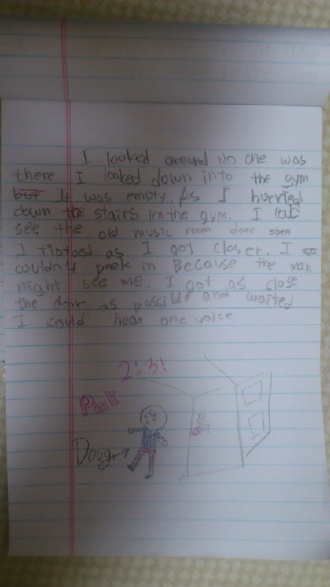 I looked around No one was
there I looked down into the gym
but It was empty. As I hurried
down the stairs in the gym. I
see the old music room done open
I tiptoed as I got closer. I
couldn4 peek in Because the man
might see me. I got as close
the door as possible and waited
I could hear one voice
2:31
Doug